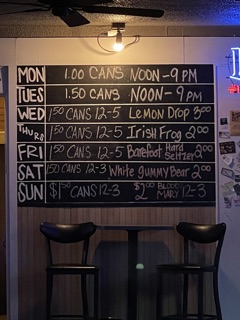 MON 1.00 CANS NOON-9PM
TUES 1.50 CANS NOON-9PM
WED 1.50 CANS 12-5 LEMON DROP 3.00
THURS 1.50 CANS 12-5 IRISH FROG 2.00
FRI 1.50 CANS 12-5 BAREFOOT HARD SELTZER 2.00
SAT 1.50 CANS 12-3 WHITE GUMMY BEAR 2.00
SUN $1.50 CANS 12-3 $2.00 BLOODY MARY 12-3